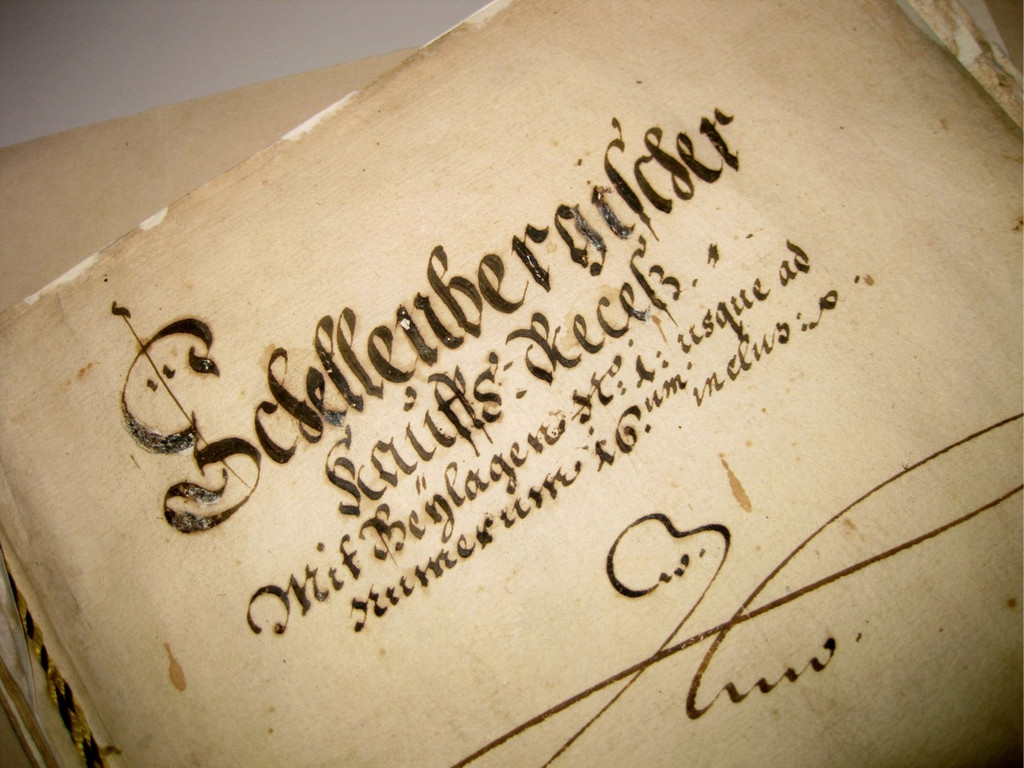 Schellenbergischer
Kauffs-Receß.
Mit Beÿlagen No: 1: usque ad
Numerum 16.um inclus:
Anno